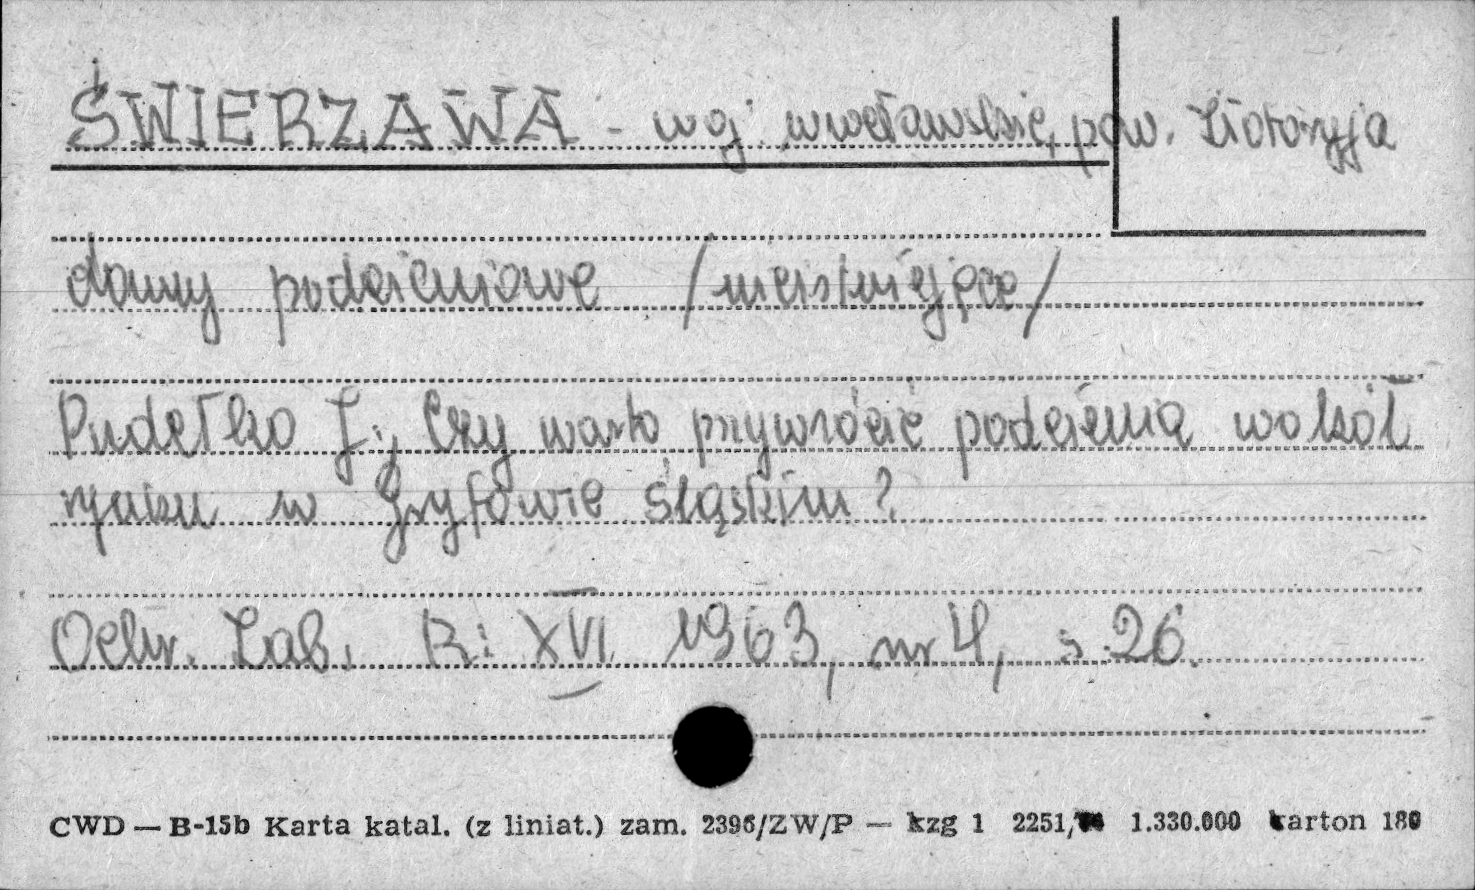 ŚWIERZAWA - woj. wrocławskie, pow. Złotoryja
domy podcieniowe /nieistniejące/
Pudełko J., Czy warto przywrócić podcienia wokół
rynku w Gryfowie Śląskim?
Ochr. Zab. R: XVI, 1963, nr 4, s. 26.
CWD — B-15b Karta katal. (z liniat.) zam. 2396/ZW/P — kzg 1 2251, 1.330.000 karton 180